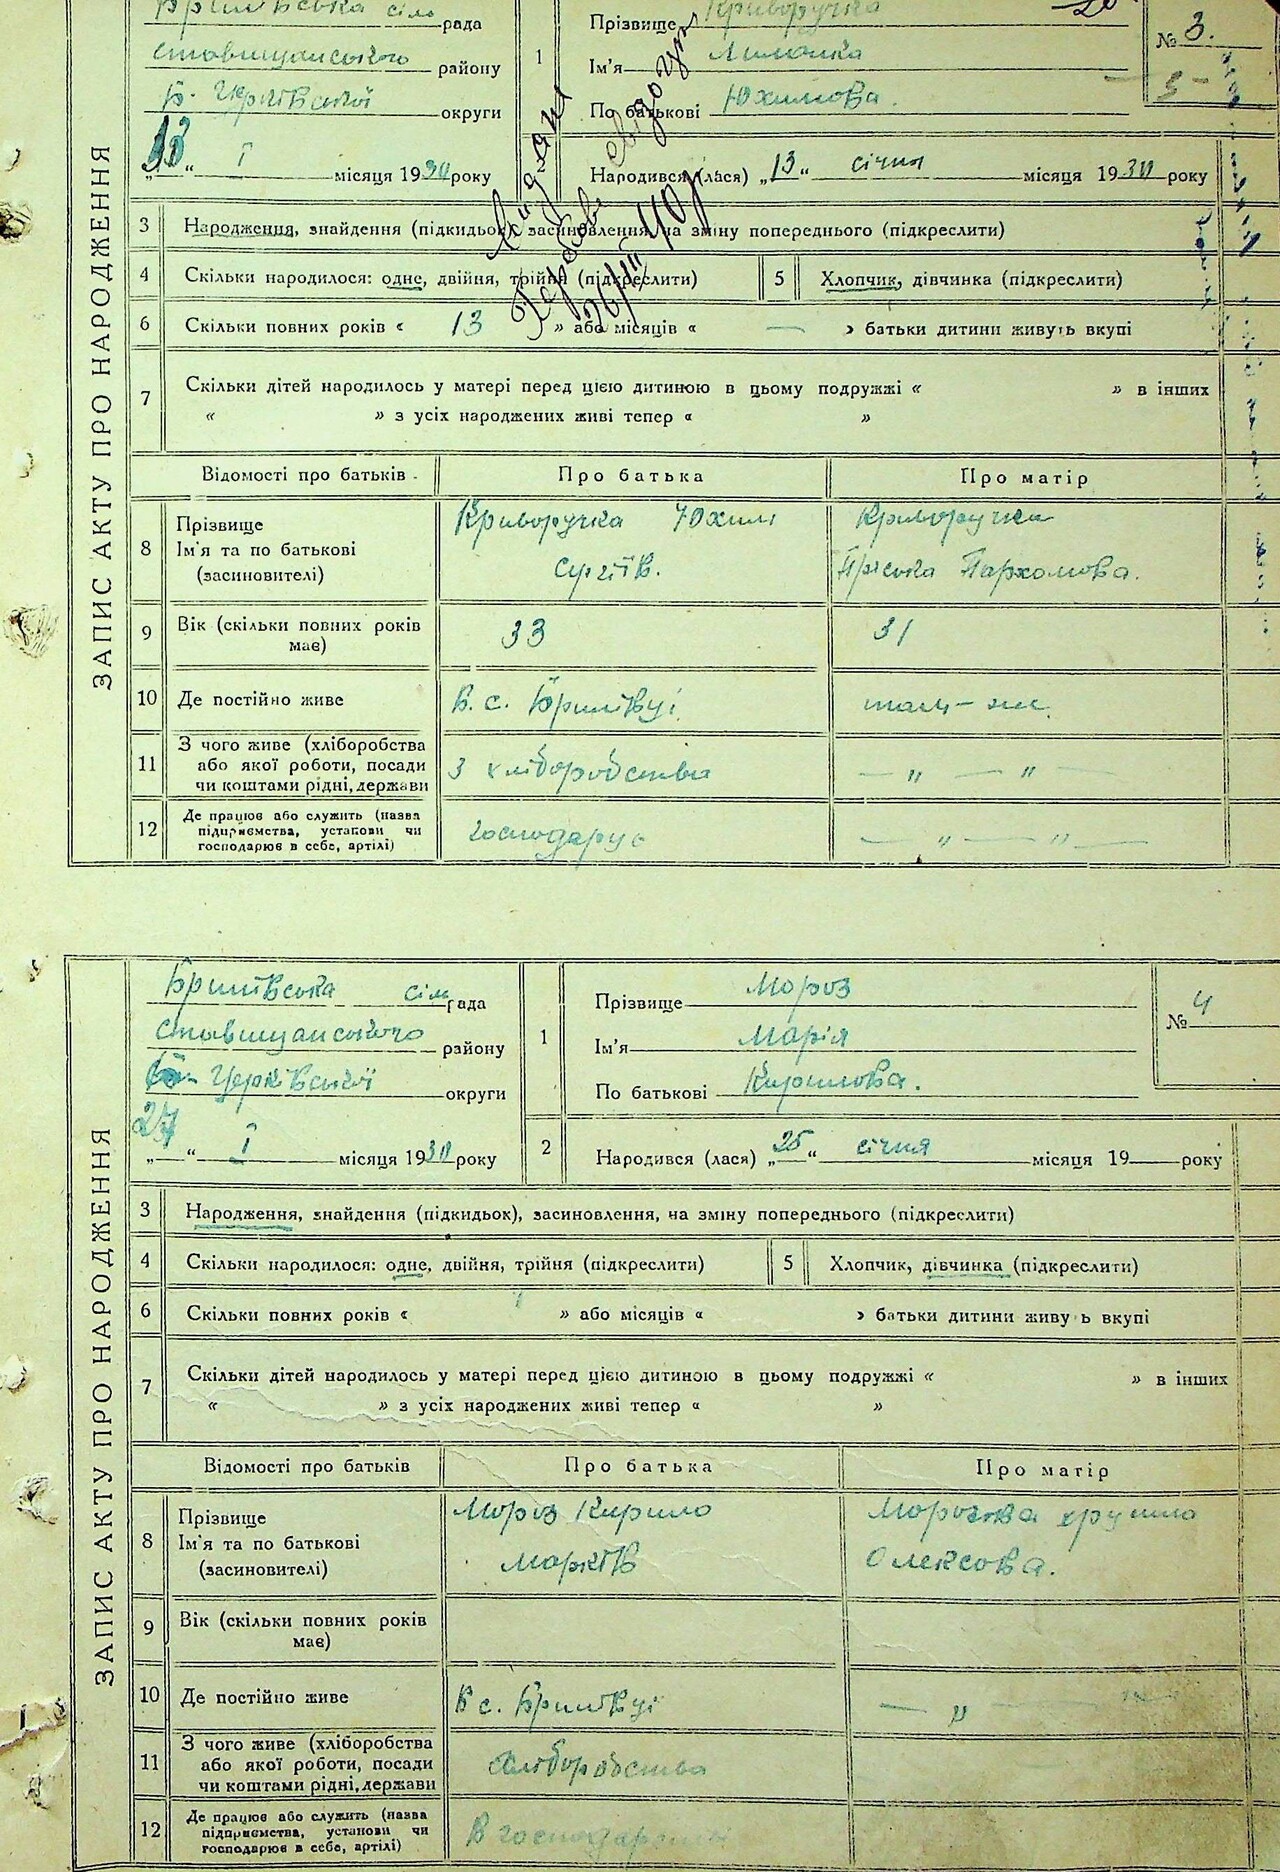 Бриливська сіль рада
Ставищанського району
Б. Церківської округи
„ “ I місяця 1930 року
1
Прізвище Криворучка
Ім'я
По батькові Юхимова.
№ 3.
Народився (лася) „13“ січня місяця 1930 року
ЗАПИС АКТУ ПРО НАРОДЖЕННЯ
3 Народження, знайдення (підкидьок), засиновлення, на зміну попереднього (підкреслити)
4 Скільки народилося: одне, двійня, трійня (підкреслити) 5 Хлопчик, дівчинка (підкреслити)
6 Скільки повних років « 13 » або місяців « — » батьки дитини живуть вкупі
7 Скільки дітей народилось у матері перед цією дитиною в цьому подружжі « » в інших
« » з усіх народжених живі тепер « »
Відомості про батьків Про батька Про матір
8 Прізвище Криворучка Юхим Криворучка
Ім'я та по батькові Сергіїв. Пріська Пархомова.
(засиновителі)
9 Вік (скільки повних років має) 33 31
10 Де постійно живе В. с. Бриливці там-же
11 З чого живе (хліборобства або якої роботи, посади чи коштами рідні, держави З хліборобства — „ — „ —
12 Де працює або служить (назва підприємства, установи чи господарює в себе, артілі) господарує — „ — „ —
Бриливська сіль рада
Ставищанського району
Б. Церківської округи
„27“ I місяця 1930 року
1
Прізвище Мороз
Ім'я Марія
По батькові Кирилова.
№ 4
2 Народився (лася) „25“ січня місяця 19 року
ЗАПИС АКТУ ПРО НАРОДЖЕННЯ
3 Народження, знайдення (підкидьок), засиновлення, на зміну попереднього (підкреслити)
4 Скільки народилося: одне, двійня, трійня (підкреслити) 5 Хлопчик, дівчинка (підкреслити)
6 Скільки повних років « » або місяців « » батьки дитини живуть вкупі
7 Скільки дітей народилось у матері перед цією дитиною в цьому подружжі « » в інших
« » з усіх народжених живі тепер « »
Відомості про батьків Про батька Про матір
8 Прізвище Мороз Кирило
Ім'я та по батькові Марків Олексова.
(засиновителі)
9 Вік (скільки повних років має)
10 Де постійно живе В с. Бриливці — „ —
11 З чого живе (хліборобства або якої роботи, посади чи коштами рідні, держави Хліборобства
12 Де працює або служить (назва підприємства, установи чи господарює в себе, артілі) В